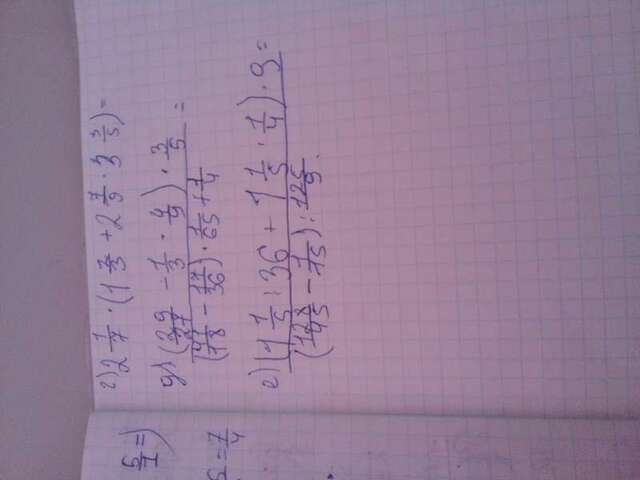 5/1 =)
г) 2 1/7 · (1 2/3 + 2 7/9 · 3 3/5) =
7/4
д) (29/27 - 1/3 · 4/9) · 3/5 =
(41/18 - 17/36) · 1/65 + 1/4
е) (1 1/5 : 36 + 1 1/5 : 1/4) · 9 =
(128/45 - 1/75) : 125/9.